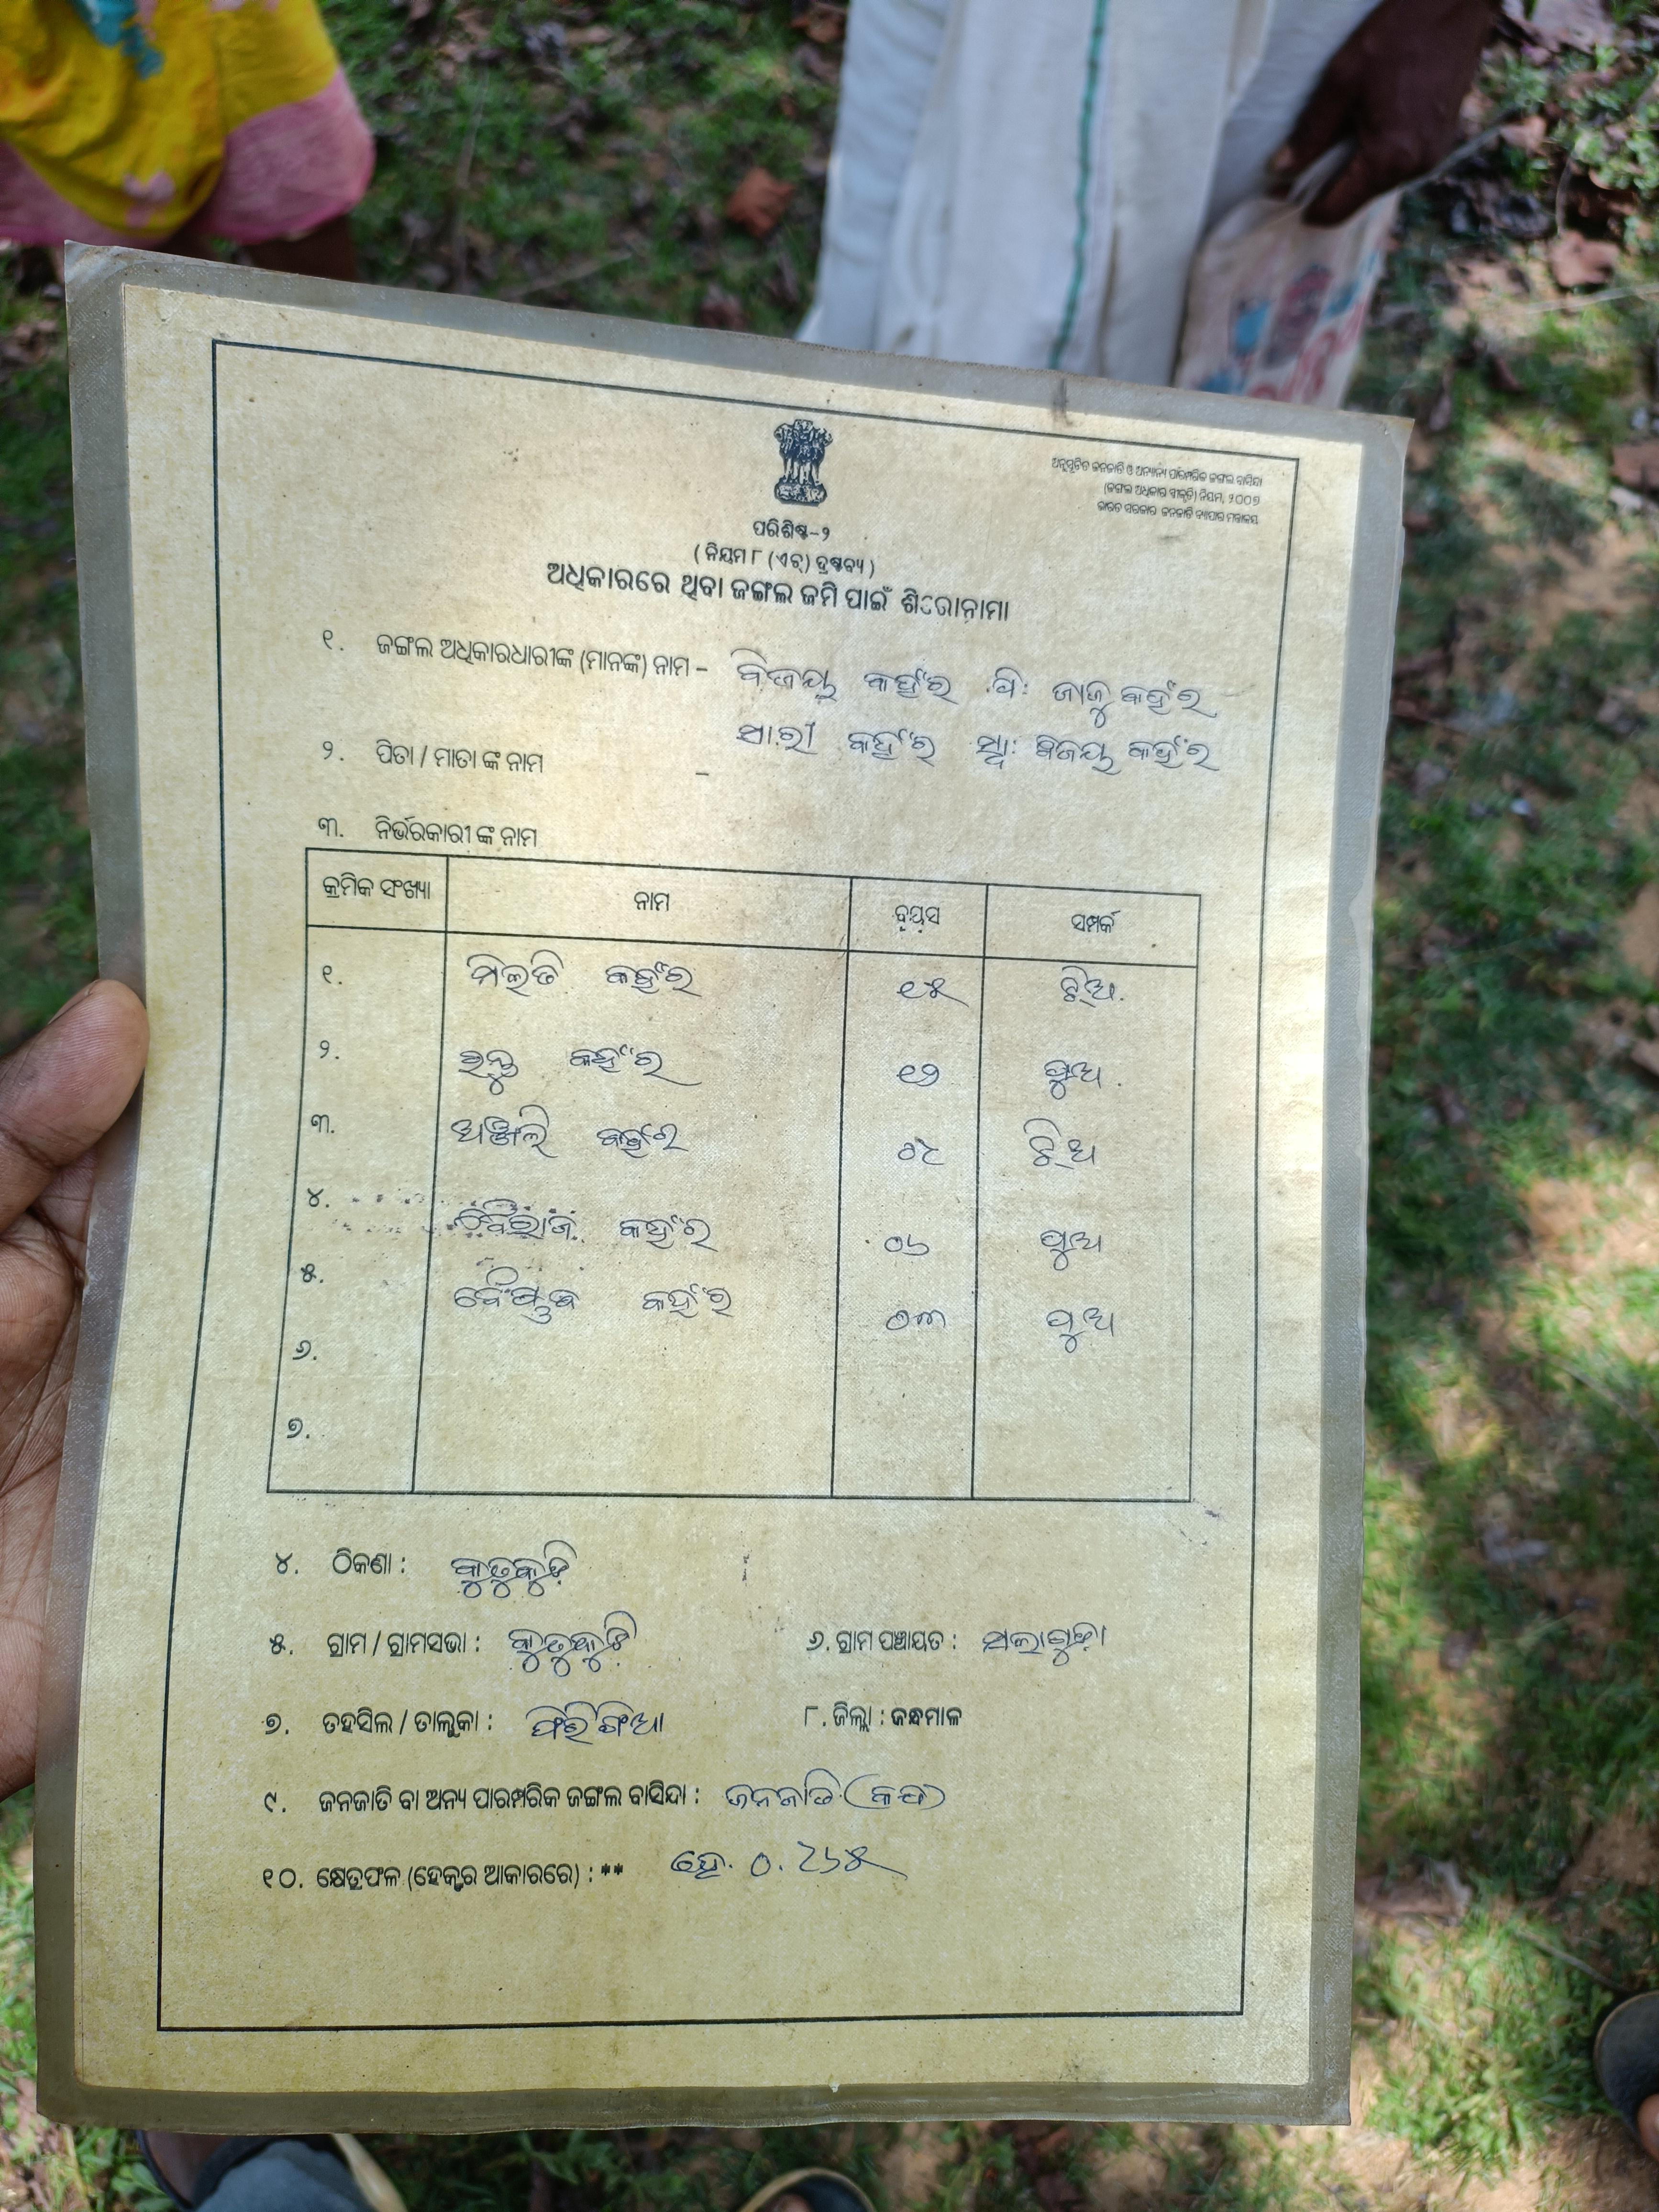 ଅନୁସୂଚିତ ଜନଜାତି ଓ ଅନ୍ୟାନ୍ୟ ପାରମ୍ପରିକ ଜଙ୍ଗଲ ବାସିନ୍ଦା
(ଜଙ୍ଗଲ ଅଧିକାର ସ୍ବୀକୃତି) ନିୟମ, ୨୦୦୭
ଭାରତ ସରକାର ଜନଜାତି ବ୍ୟାପାର ମନ୍ତ୍ରାଳୟ
ପରିଶିଷ୍ଟ-୨
( ନିୟମ ୮ (ଏଚ୍) ଦ୍ରଷ୍ଟବ୍ୟ )
ଅଧିକାରରେ ଥିବା ଜଙ୍ଗଲ ଜମି ପାଇଁ ଶିରୋନାମା
୧. ଜଙ୍ଗଲ ଅଧିକାରଧାରୀଙ୍କ (ମାନଙ୍କ) ନାମ – ବିଜୟ କହଁର ପି: ଜାଜୁ କହଁର
ସାରୀ କହଁର ସ୍ୱା: ବିଜୟ କହଁର
୨. ପିତା / ମାତା ଙ୍କ ନାମ –
୩. ନିର୍ଭରକାରୀ ଙ୍କ ନାମ
କ୍ରମିକ ସଂଖ୍ୟା ନାମ ବୟସ ସମ୍ପର୍କ
୧. ମିଲତି କହଁର ୧୫ ଝିଅ.
୨. ରନ୍ତୁ କହଁର ୧୨ ପୁଅ.
୩. ଅଞ୍ଜଲି କହଁର ୦୯ ଝିଅ
୪. କହଁର ୦୬ ପୁଅ
୫. ବୈଷ୍ଣବ କହଁର ୦୩ ପୁଅ
୬.
୭.
୪. ଠିକଣା : କୁତୁକୁଡ଼ି
୫. ଗ୍ରାମ / ଗ୍ରାମସଭା : କୁତୁକୁଡ଼ି ୬. ଗ୍ରାମ ପଞ୍ଚାୟତ : ସଲାଗୁଡ଼ା
୭. ତହସିଲ / ତାଲୁକା : ଫିରିଙ୍ଗିଆ ୮. ଜିଲ୍ଲା : କନ୍ଧମାଳ
୯. ଜନଜାତି ବା ଅନ୍ୟ ପାରମ୍ପରିକ ଜଙ୍ଗଲ ବାସିନ୍ଦା : ଜନଜାତି (କନ୍ଧ)
୧୦. କ୍ଷେତ୍ରଫଳ (ହେକ୍ଟର ଆକାରରେ) : ** ହେ. ୦.୨୬୫